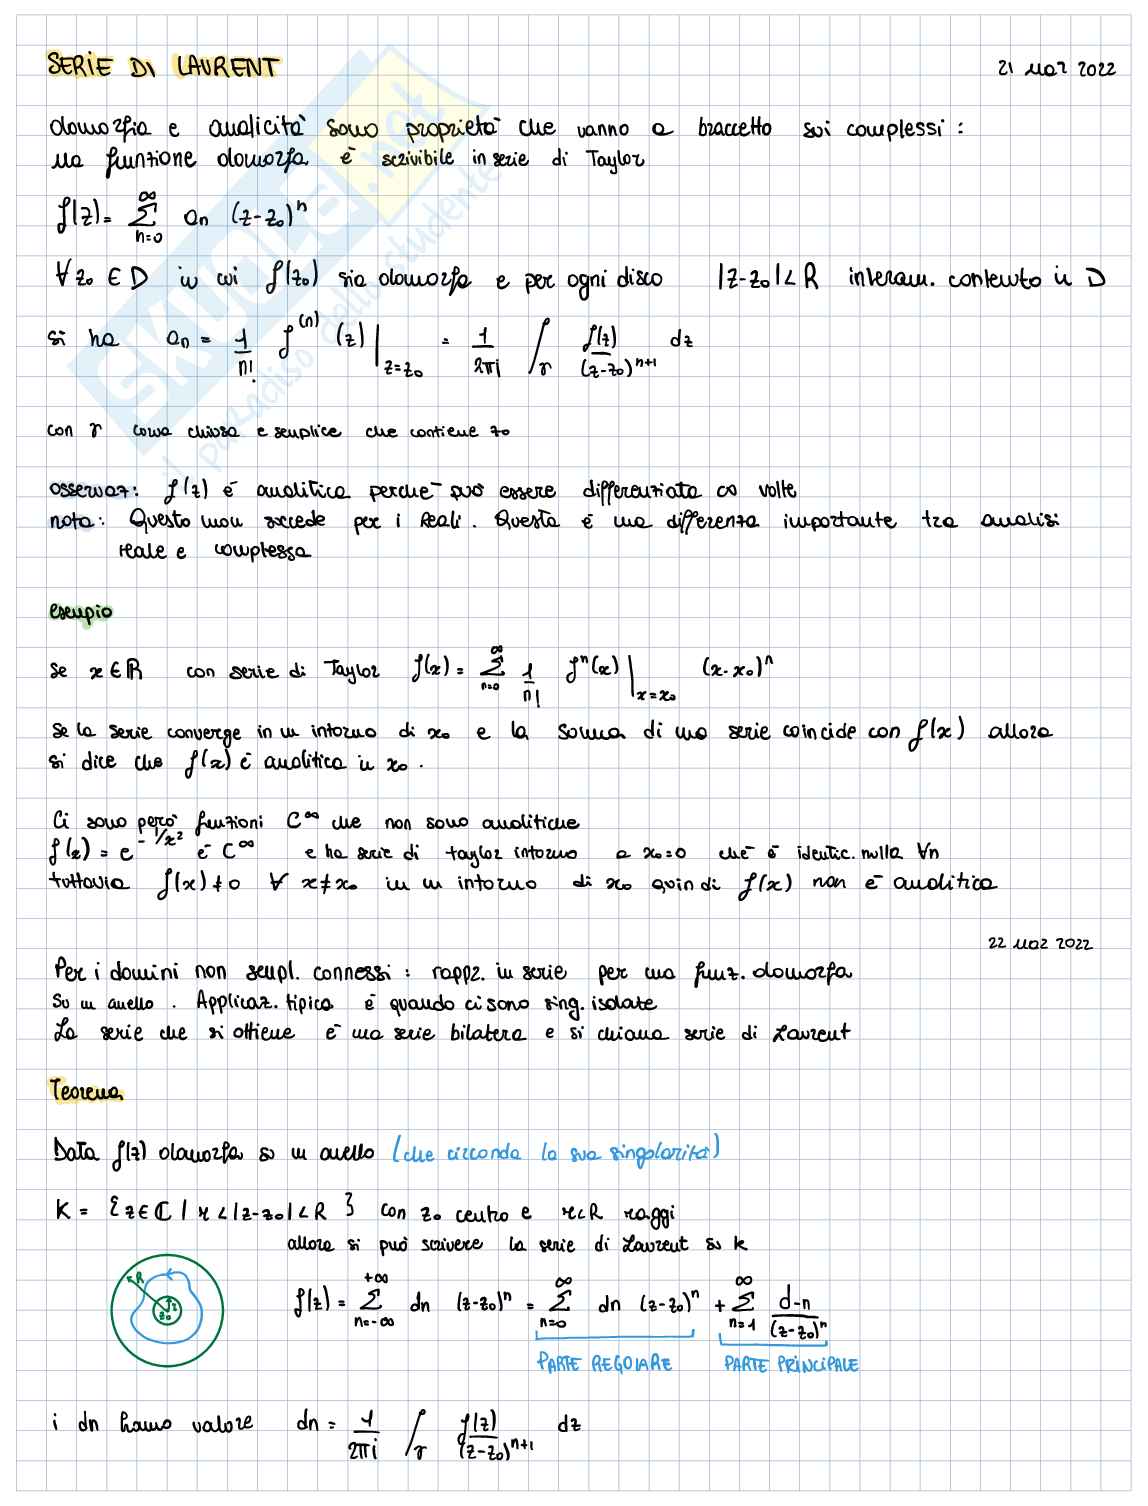 SERIE DI LAURENT
21 mar 2022
olomorfia e analicità sono proprietà che vanno a braccetto sui complessi :
una funzione olomorfa è scrivibile in serie di Taylor
f(z) = ∑_{n=0}^{∞} an (z-z₀)ⁿ
∀ z₀ ∈ D in cui f(z₀) sia olomorfa e per ogni disco |z-z₀| < R interam. contenuto in D
si ha an = 1/n! f⁽ⁿ⁾(z) |_{z=z₀} = 1/2πi ∫_γ f(z)/(z-z₀)ⁿ⁺¹ dz
con γ curva chiusa e semplice che contiene z₀
osservaz: f(z) è analitica perché può essere differenziata ∞ volte
nota: Questo non succede per i Reali. Questa è una differenza importante tra analisi
reale e complessa
esempio
Se x ∈ ℝ con serie di Taylor f(x) = ∑_{n=0}^{∞} 1/n! fⁿ(x) |_{x=x₀} (x-x₀)ⁿ
Se la serie converge in un intorno di x₀ e la somma di una serie coincide con f(x) allora
si dice che f(x) è analitica in x₀.
Ci sono però funzioni C^∞ che non sono analitiche
f(x) = e^{-1/x²} è C^∞ e ha serie di taylor intorno a x₀=0 che è identic. nulla ∀n
tuttavia f(x) ≠ 0 ∀ x≠x₀ in un intorno di x₀ quindi f(x) non è analitica
22 mar 2022
Per i domini non sempl. connessi : rappr. in serie per una funz. olomorfa
su un anello. Applicaz. tipica è quando ci sono sing. isolate
La serie che si ottiene è una serie bilatera e si chiama serie di Laurent
Teorema
Data f(z) olomorfa su un anello (che circonda la sua singolarità)
K = {z∈ℂ | r < |z-z₀| < R } con z₀ centro e r<R raggi
allora si può scrivere la serie di Laurent su k
R
r
z₀
f(z) = ∑_{n=-∞}^{+∞} dn (z-z₀)ⁿ = ∑_{n=0}^{∞} dn (z-z₀)ⁿ + ∑_{n=1}^{∞} d-n/(z-z₀)ⁿ
PARTE REGOLARE PARTE PRINCIPALE
i dn hanno valore dn = 1/2πi ∫_γ f(z)/(z-z₀)ⁿ⁺¹ dz
SKUOLA.net
il paradiso dello studente